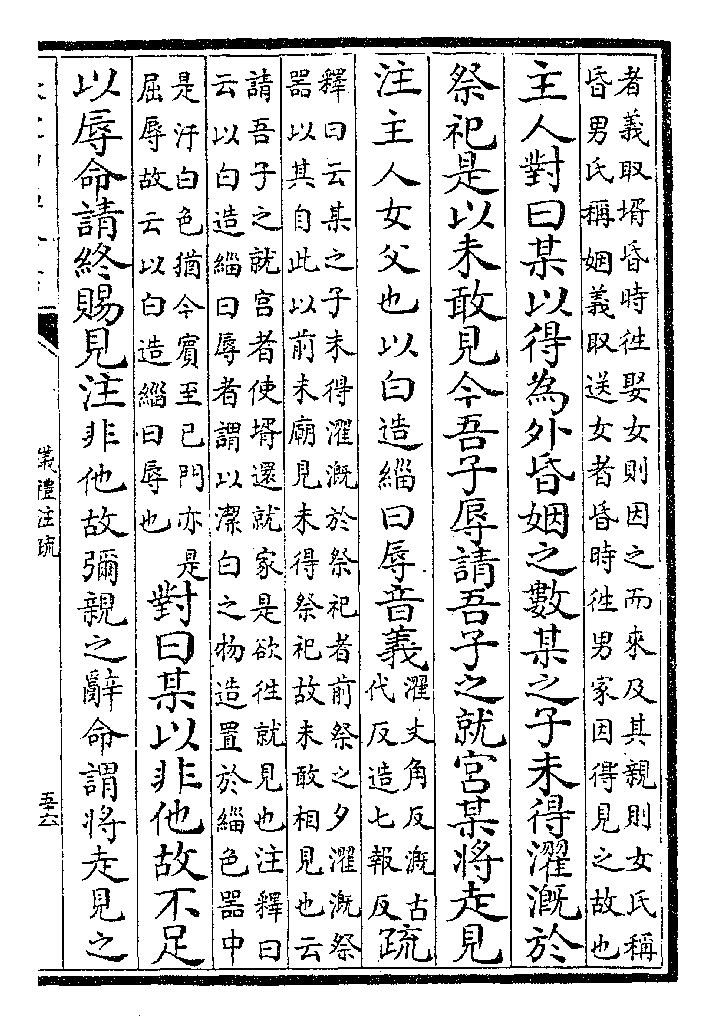 者義取壻昏時徃娶女則因之而來及其親則女氏稱
昏男氏稱姻義取送女者昏時徃男家因得見之故也
主人對曰某以得為外昏姻之數某之子未得濯漑於
祭祀是以未敢見今吾子辱請吾子之就宮某將走見
注主人女父也以白造緇曰辱音義
濯丈角反漑古
代反造七報反
疏
釋曰云某之子未得濯漑於祭祀者前祭之夕濯漑祭
器以其自此以前未廟見未得祭祀故未敢相見也云
請吾子之就宮者使壻還就家是欲徃就見也注釋曰
云以白造緇曰辱者謂以潔白之物造置於緇色器中
是汙白色猶今賓至已門亦是
屈辱故云以白造緇曰辱也
對曰某以非他故不足
以辱命請終賜見注非他故彌親之辭命謂將走見之
儀禮注疏
五十六